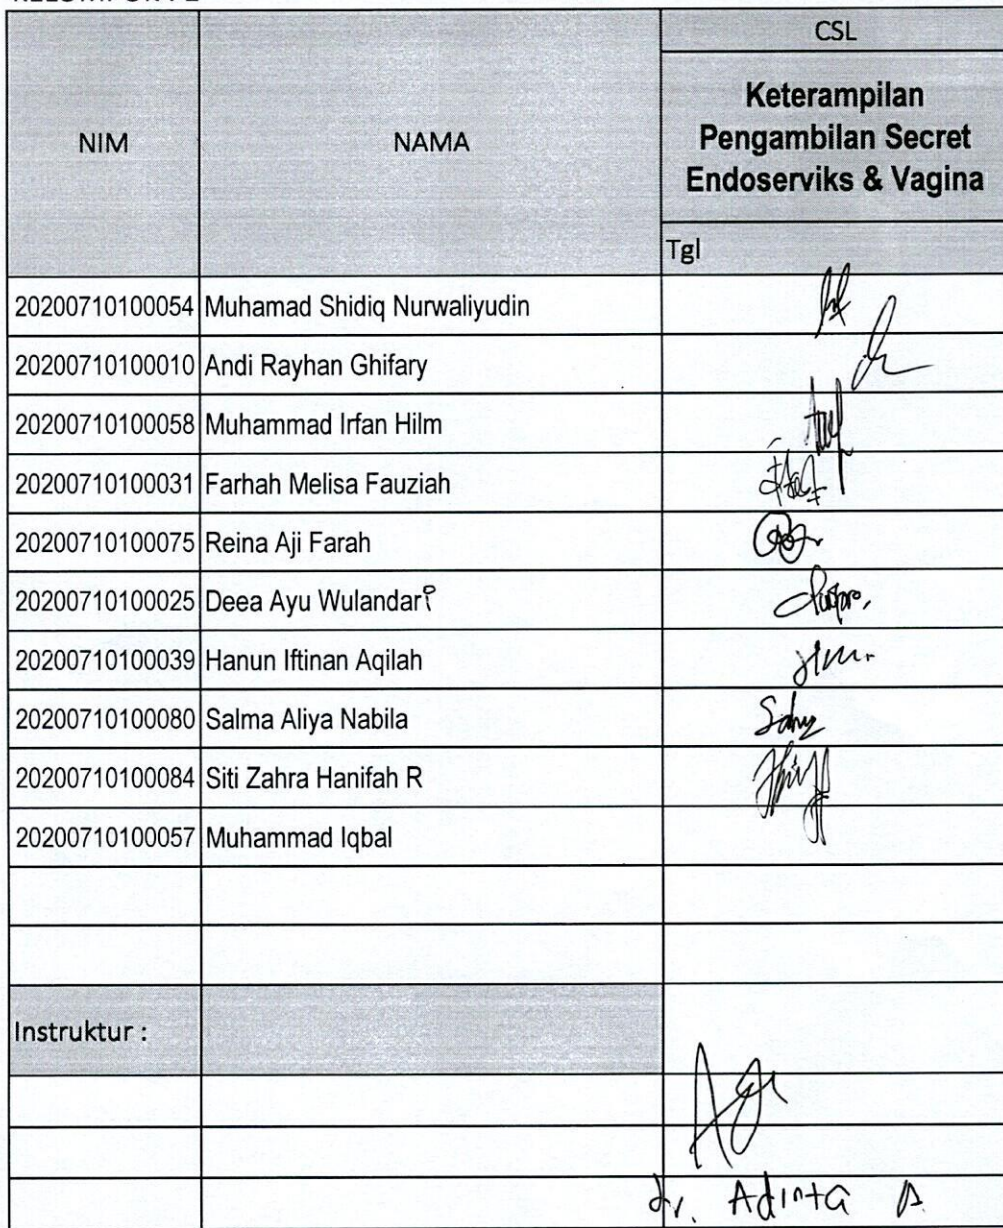 CSL
NIM NAMA
Keterampilan
Pengambilan Secret
Endoserviks & Vagina
Tgl
20200710100054 Muhamad Shidiq Nurwaliyudin
20200710100010 Andi Rayhan Ghifary
20200710100058 Muhammad Irfan Hilm
20200710100031 Farhah Melisa Fauziah
20200710100075 Reina Aji Farah
20200710100025 Deea Ayu Wulandari
20200710100039 Hanun Iftinan Aqilah
20200710100080 Salma Aliya Nabila
20200710100084 Siti Zahra Hanifah R
20200710100057 Muhammad Iqbal
Instruktur :
dr. Adinta